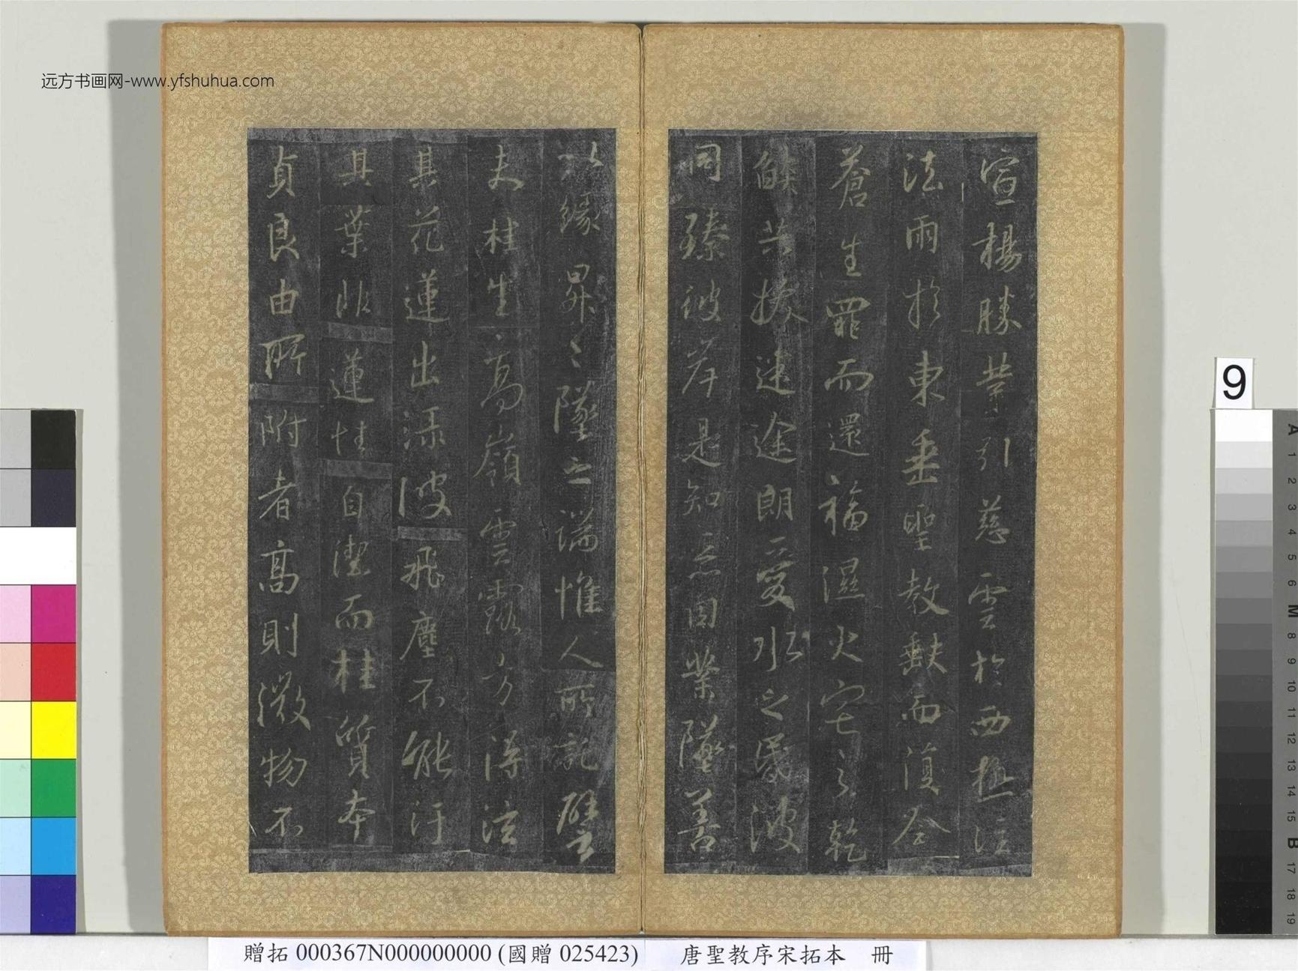 远方书画网-www.yfshuhua.com
宣揚勝業引慈雲於西極注
法雨於東垂聖教缺而復全
蒼生罪而還福濕火宅之乾
燄共拔迷途朗愛水之昏波
同臻彼岸是知惡因業墜善
以緣昇昇墜之端惟人所託譬
夫桂生高嶺雲露方得泫
其花蓮出淥波飛塵不能汙
其葉非蓮性自潔而桂質本
貞良由所附者高則微物不
9
A 1 2 3 4 5 6 M 8 9 10 11 12 13 14 15 B 17 18 19
贈拓 000367N000000000 (國贈 025423) 唐聖教序宋拓本 冊